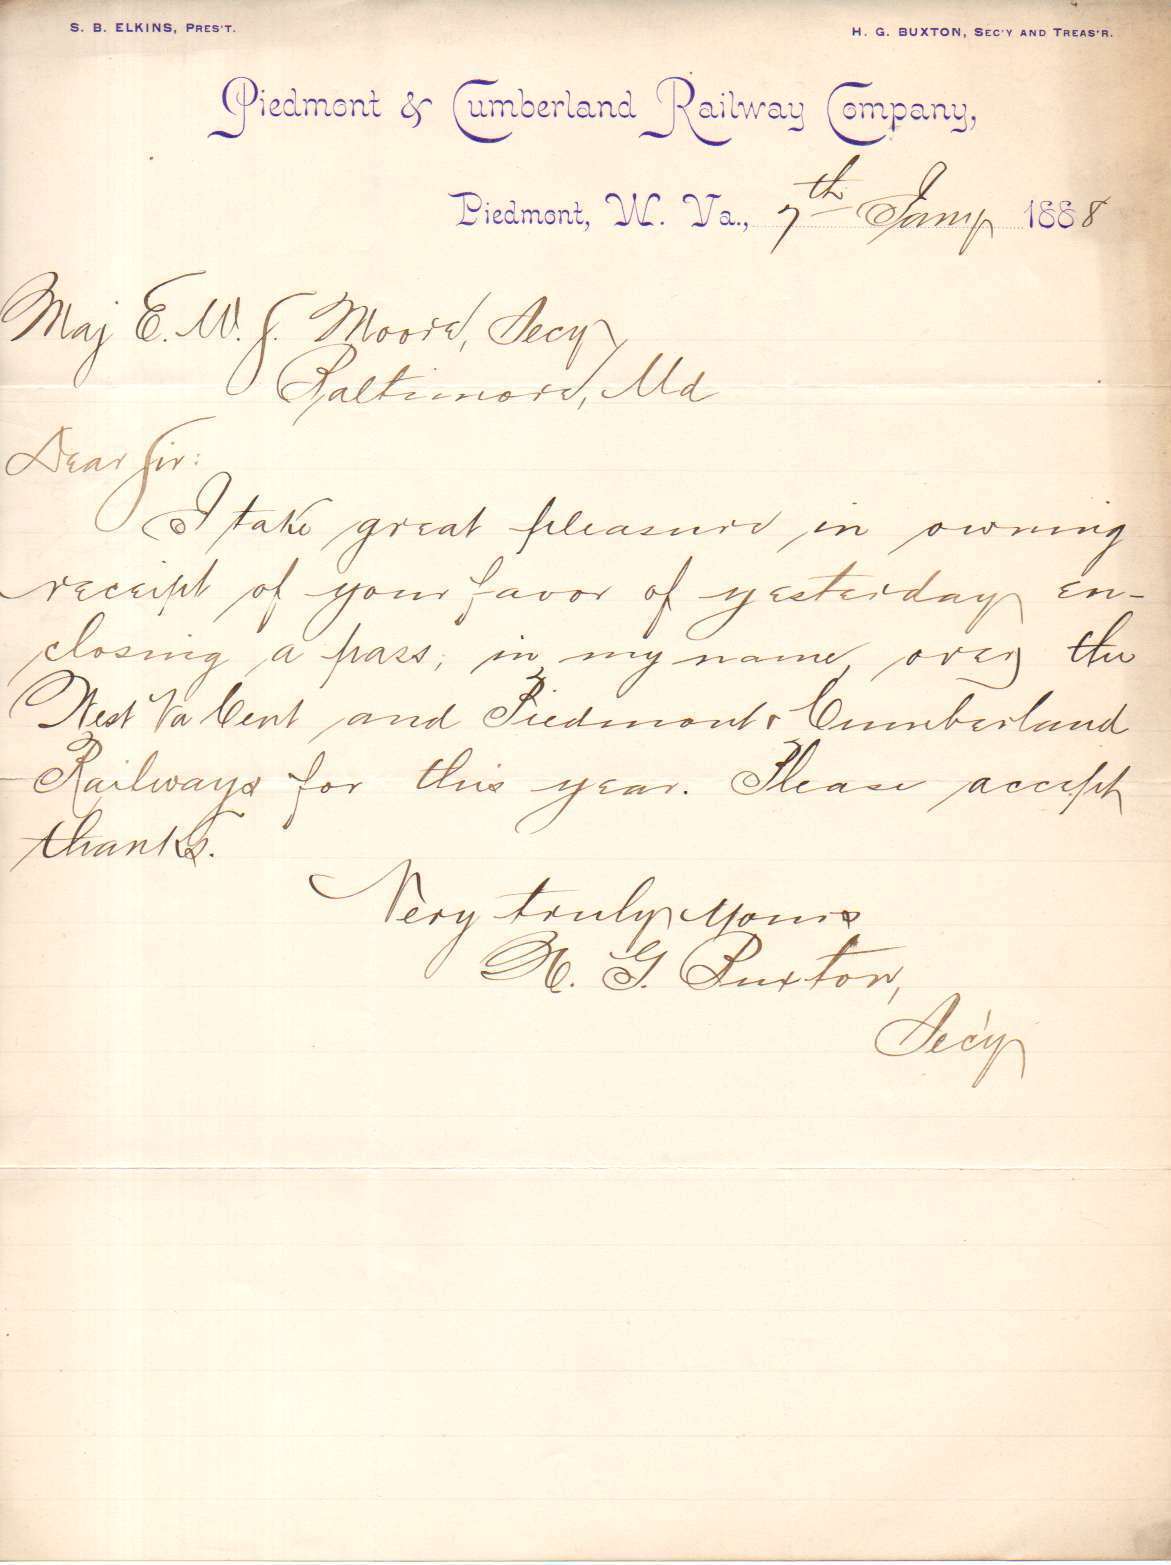 S. B. ELKINS, PRES'T.
H. G. BUXTON, SEC'Y AND TREAS'R.
Piedmont & Cumberland Railway Company,
Piedmont, W. Va., 7th Jany 1888
Maj E. W. S. Moore, Secy
Baltimore, Md
Dear Sir:
I take great pleasure in owning
receipt of your favor of yesterday en-
closing a pass, in my name, over the
West Va Cent and Piedmont & Cumberland
Railways for this year. Please accept
thanks.
Very truly yours
H. G. Buxton,
Sec'y